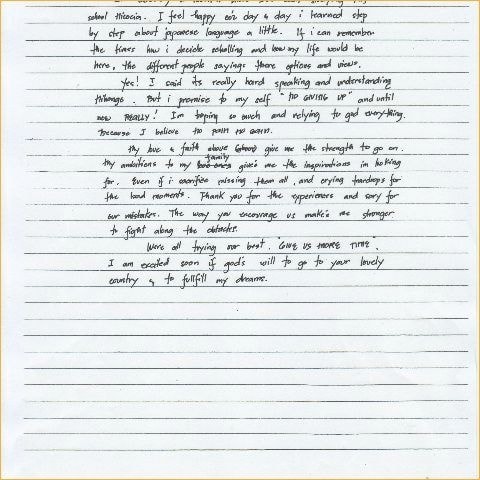 school Mirecia. I feel happy coz day & day i learned step
by step about japanese language a little. If i can remember
the times how i decide schalling and how my life would be
here, the different people sayings there options and views.
Yes! I said its really hard speaking and understanding
things. But i promise to my self "NO GIVING UP" and until
now REALLY! Im hoping so much and relying to god everything.
Because I believe no pain no gain.
My love & faith above give me the strength to go on.
My ambitions to my family give's me the inspirations im looking
for. Even if i sacrifice missing them all, and crying teardrops for
the hard moments. Thank you for the experiences and sory for
our mistakes. The way you encourage us make's me stronger
to fight along the obstacles.
Were all trying our best. "GIVE US MORE TIME.
I am excited soon if god's will to go to your lovely
country & to fullfill my dreams.